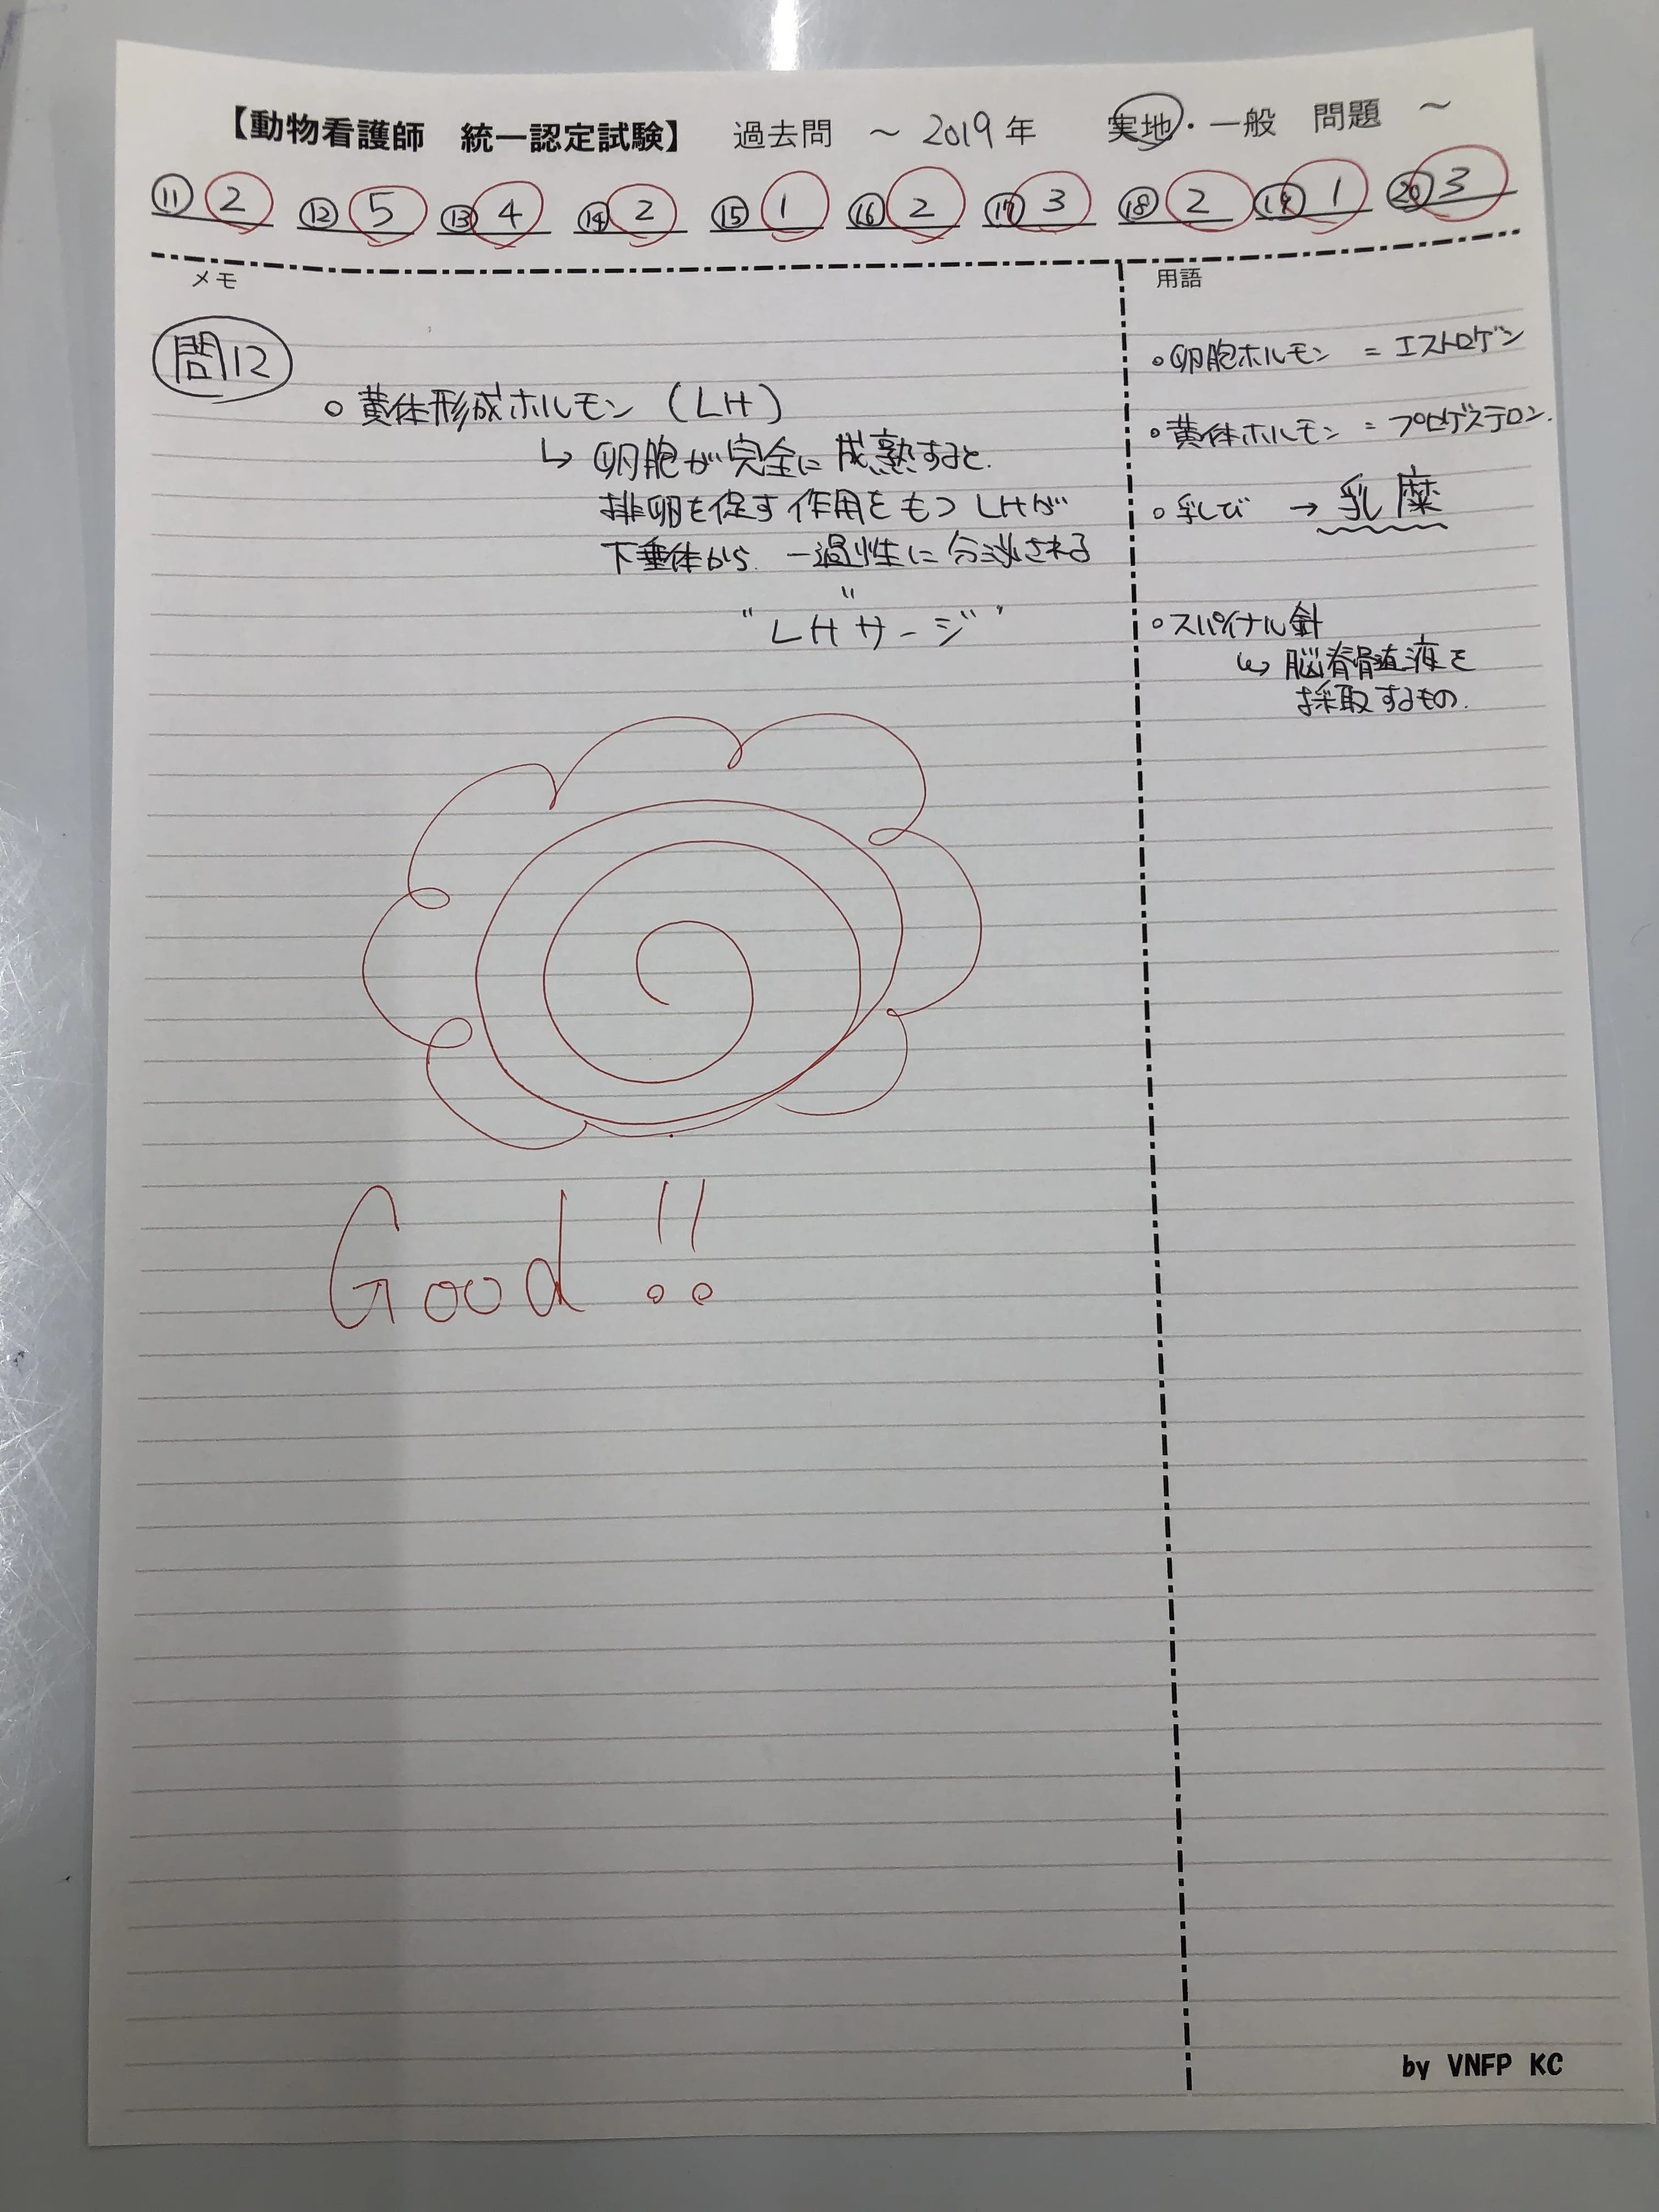 【動物看護師 統一認定試験】 過去問 ～ 2019年 実地・一般 問題 ～
⑪ 2 ⑫ 5 ⑬ 4 ⑭ 2 ⑮ 1 ⑯ 2 ⑰ 3 ⑱ 2 ⑲ 1 ⑳ 3
メモ
問12
○ 黄体形成ホルモン (LH)
↳ 卵胞が完全に成熟すると.
排卵を促す作用をもつLHが
下垂体から. 一過性に分泌される
"LH"サージ"
Good!!
用語
○卵胞ホルモン = エストロゲン
○黄体ホルモン = プロゲステロン.
○乳び → 乳糜
○スパイナル針
↳ 脳脊髄液を
採取するもの.
by VNFP KC